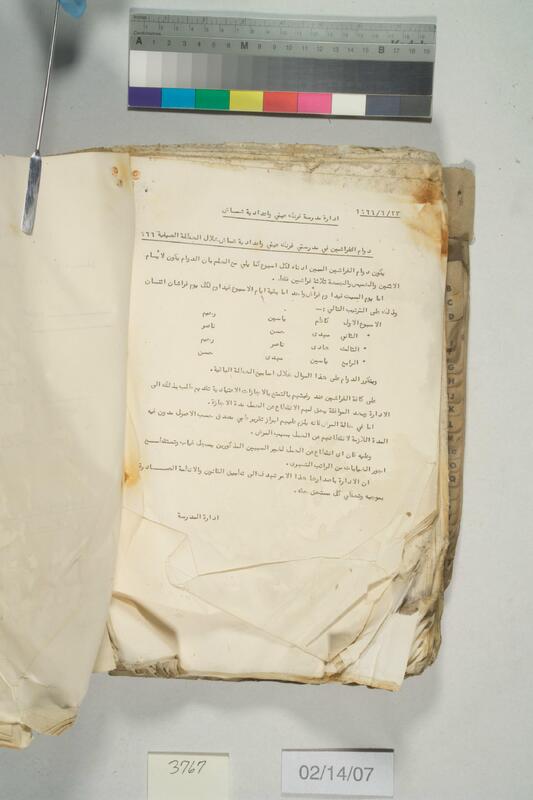 ١٩٦٦/٦/٢٣
ادارة مدرسة فرنك عيني واعدادية شماش
دوام الفراشين في مدرستي فرنك عيني واعدادية شماش خلال العطلة الصيفية ٩٦٦
يكون دوام الفراشين المبين ادناه لكل اسبوع كما يلي مع العلم بان الدوام يكون لايام
الاثنين والخميس والجمعة ثلاثة فراشين فقط.
اما يوم السبت فيداوم فراش واحد اما بقية ايام الاسبوع فيداوم لكل يوم فراشان اثنان
وذلك على الترتيب التالي :-
الاسبوع الاول كاظم ياسين رحيم
" الثاني مهدي حسن ناصر
" الثالث هادي ناصر رحيم
" الرابع ياسين مهدي حسن
ويتكرر الدوام على هذا المنوال خلال اسابيع العطلة الباقية.
على كافة الفراشين عند رغبتهم بالتمتع بالاجازات الاعتيادية تقديم طلب بذلك الى
الادارة وبعد الموافقة يحق لهم الانقطاع عن العمل مدة الاجازة.
اما في حالة المرض فانه يلزم عليهم ابراز تقرير طبي مصدق حسب الاصول مدون فيه
المدة اللازمة لانقطاعهم عن العمل بسبب المرض.
وعليه فان اي انقطاع عن العمل لغير السببين المذكورين يسجل غياب وتستقطع
اجور الغيابات من الراتب الشهري.
ان الادارة باصدارها هذا الامر تهدف الى تطبيق القانون والانظمة الصادرة
بموجبه وتعطي كل مستحق حقه.
ادارة المدرسة
B
C
D
G
H
J
K
3767
02/14/07